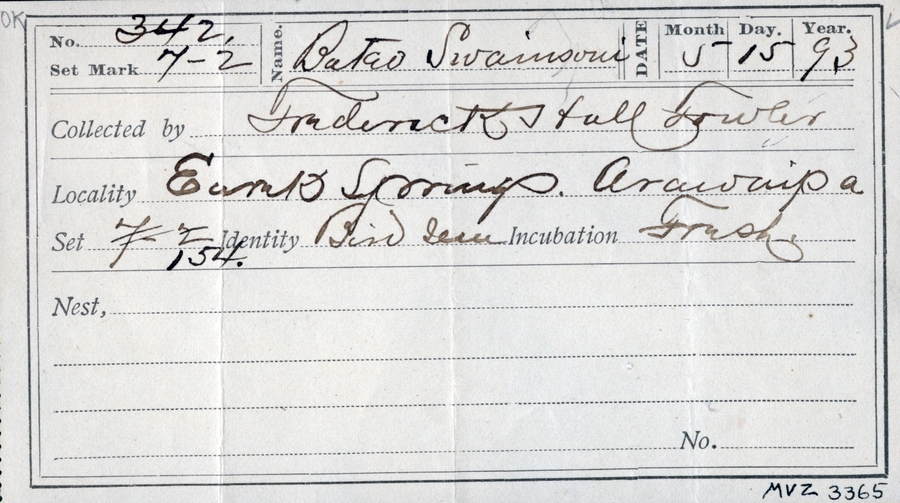 OK
No. 342. Name. Buteo Swainsoni DATE Month 5 Day. 15 Year. 93
Set Mark 7-2
Collected by Frederick Hall Fowler
Locality Springs. Aravaipa
Set 7-2 Identity Bird seen Incubation Fresh.
154.
Nest,
No.
MVZ 3365